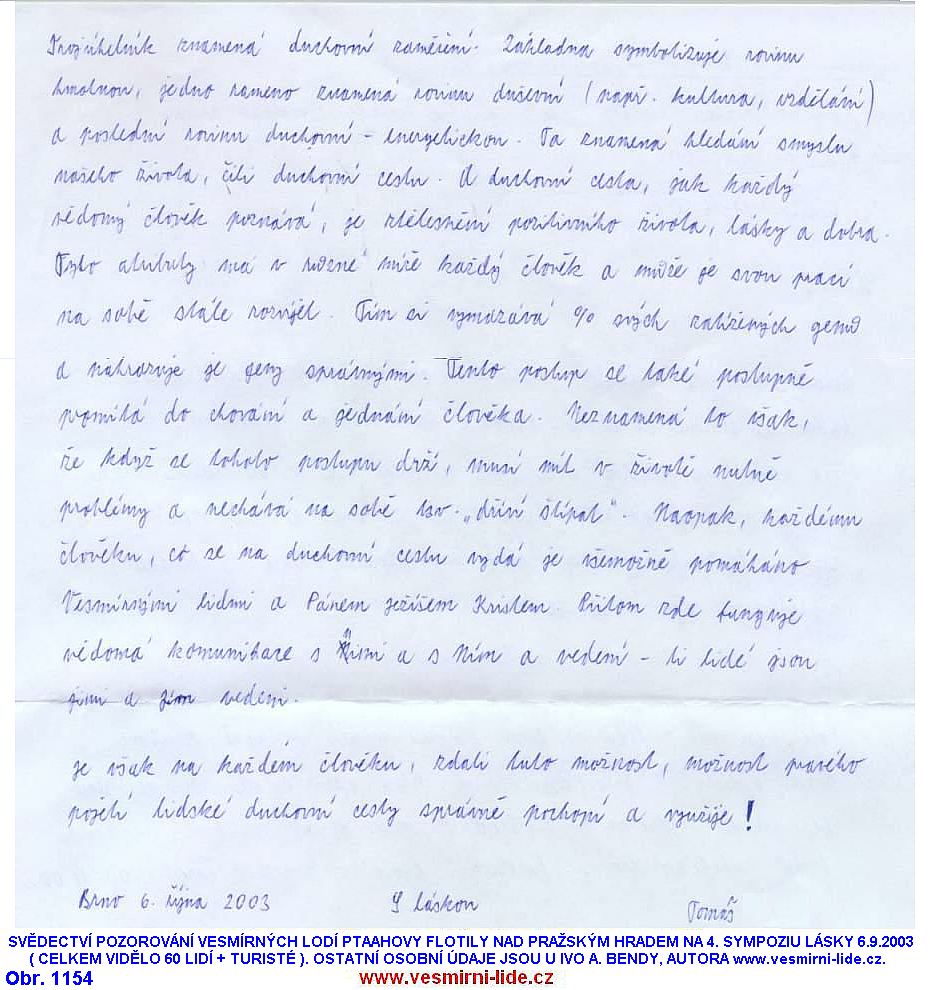 Trojúhelník znamená duchovní zaměření. Základna symbolizuje rovinu
hmotnou, jedno rameno znamená rovinu duševní (např. kultura, vzdělání)
a poslední rovinu duchovní - energetickou. Ta znamená hledání smyslu
našeho života, čili duchovní cestu. A duchovní cesta, jak každý
vědomý člověk poznává, je ztělesnění pozitivního života, lásky a dobra.
Tyto atributy má v různé míře každý člověk a může je svou prací
na sobě stále rozvíjet. Tím si vymazává % svých zatížených genů
a nahrazuje je geny správnými. Tento postup se také postupně
promítá do chování a jednání člověka. Neznamená to však,
že když se tohoto postupu drží, musí mít v životě nutně
problémy a nechává na sobě tzv. "dříví štípat". Naopak, každému
člověku, co se na duchovní cestu vydá je všemožně pomáháno
Vesmírnými lidmi a Pánem Ježíšem Kristem. Přitom zde funguje
vědomá komunikace s Nimi a s Ním a vedení - ti lidé jsou
jimi a Jím vedeni.
Je však na každém člověku, zdali tuto možnost, možnost pravého
pojetí lidské duchovní cesty správně pochopí a využije!
Brno 6. října 2003 S láskou Tomáš
SVĚDECTVÍ POZOROVÁNÍ VESMÍRNÝCH LODÍ PTAAHOVY FLOTILY NAD PRAŽSKÝM HRADEM NA 4. SYMPOZIU LÁSKY 6.9.2003
( CELKEM VIDĚLO 60 LIDÍ + TURISTÉ ). OSTATNÍ OSOBNÍ ÚDAJE JSOU U IVO A. BENDY, AUTORA www.vesmirni-lide.cz.
Obr. 1154 www.vesmirni-lide.cz